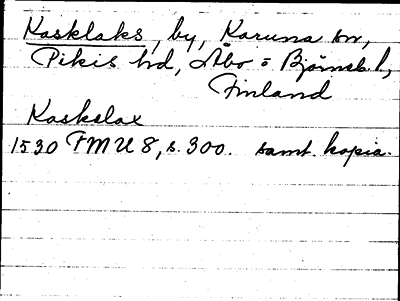 Kasklaks, by, Karuna sn,
Pikis hd, Åbo o Björneb. l,
Finland
Kaskelax
1530 FMU 8, s. 300. samt. kopia.